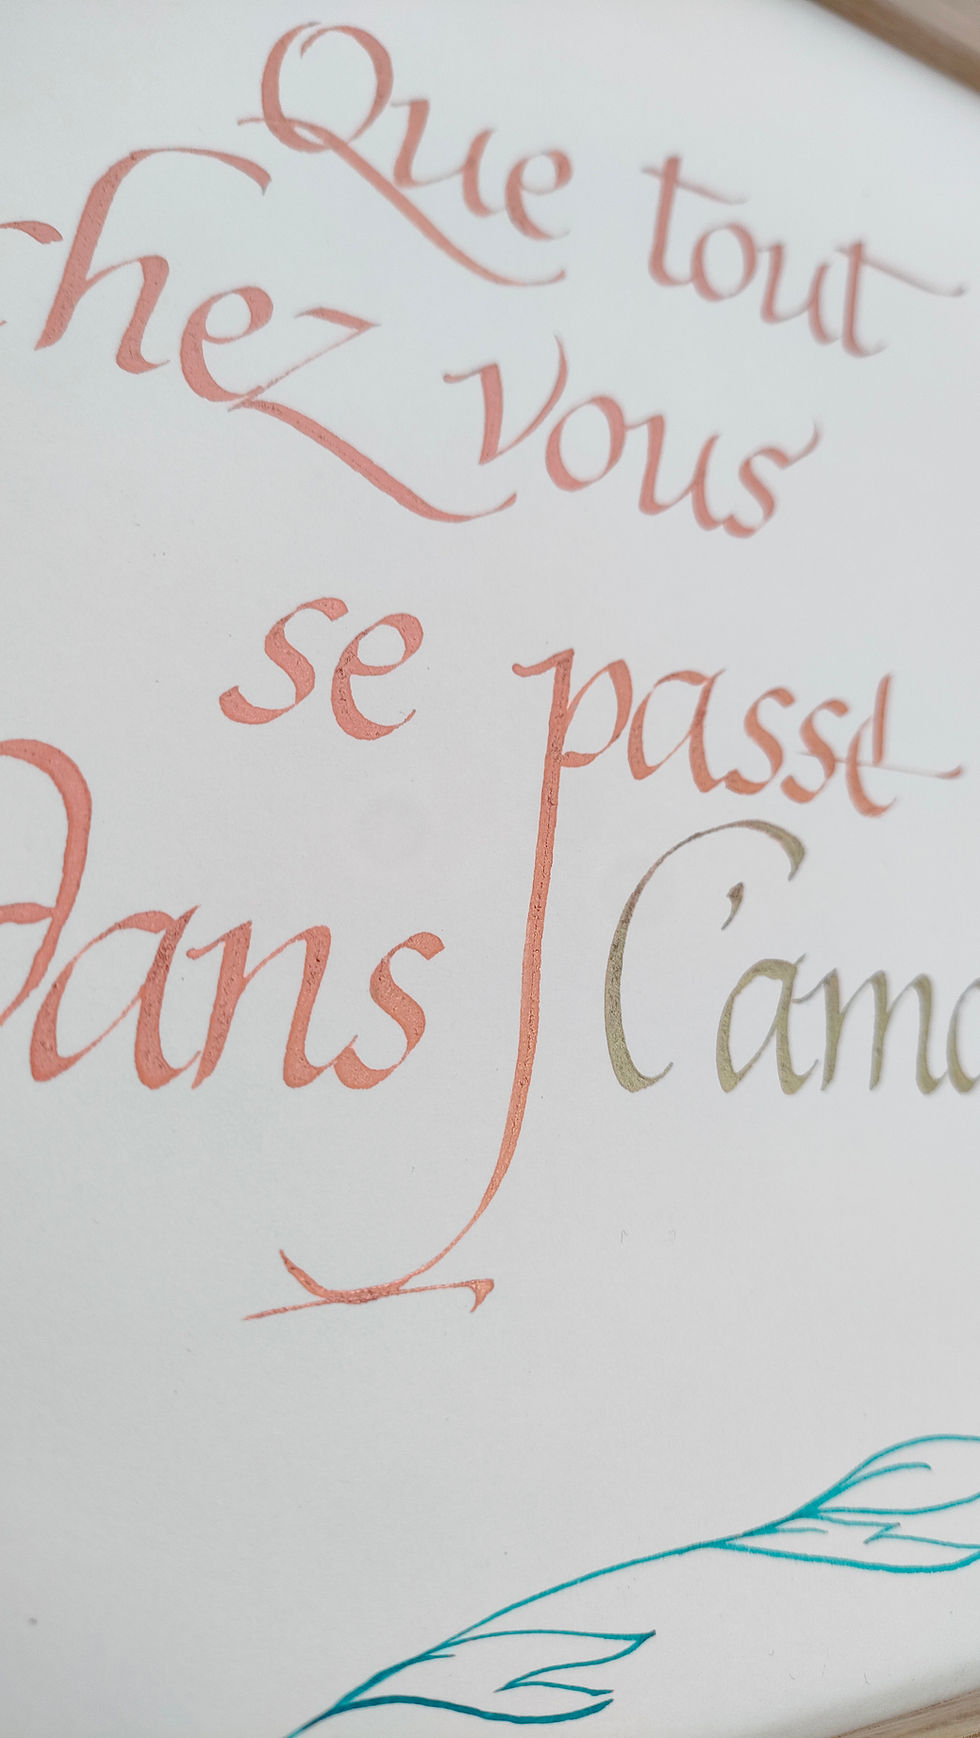 Que tout
chez vous
se passe
Dans l'amo